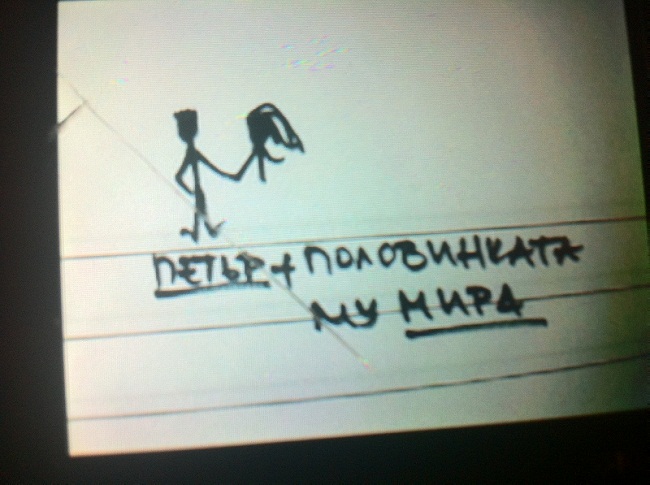 ПЕТЬР + ПОЛОВИНКАТА
МУ МИРА